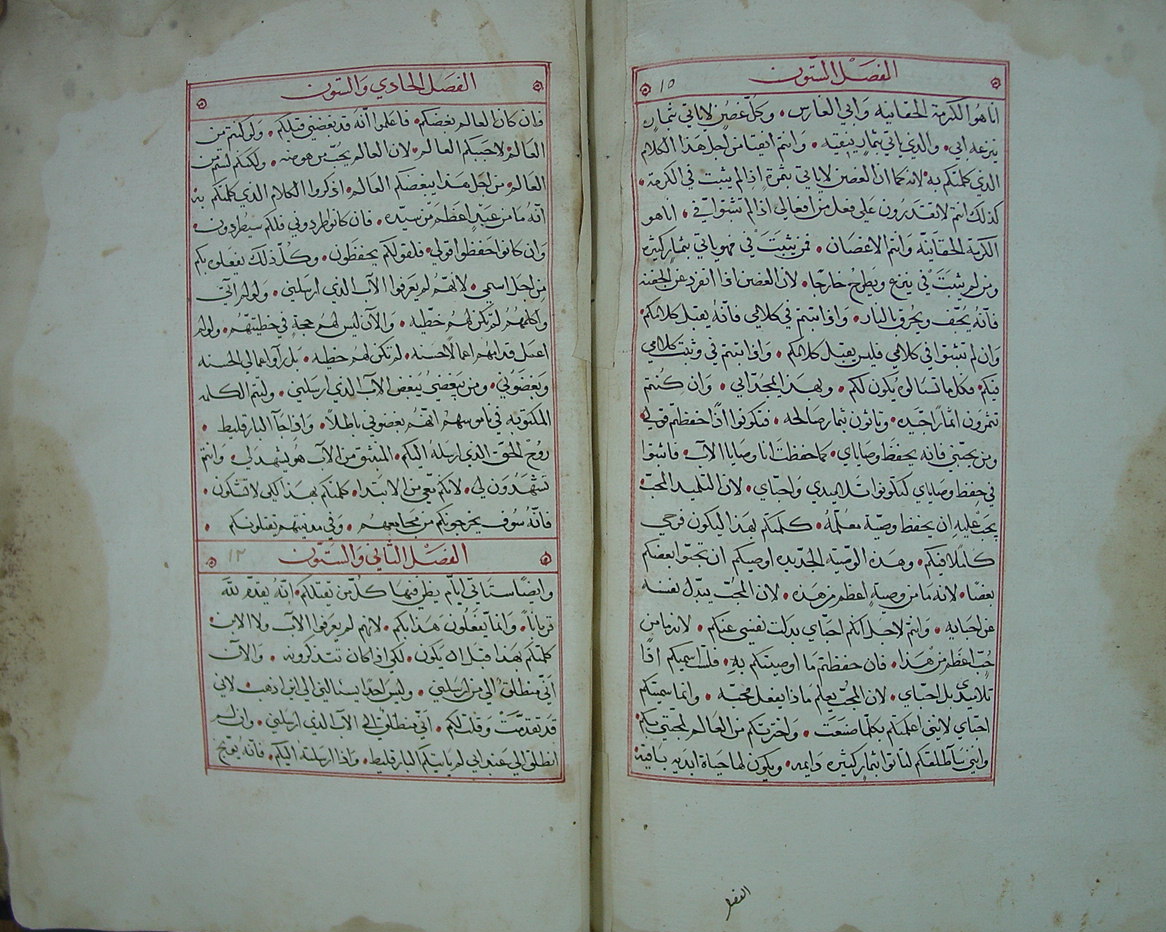 الفصل الستون ١٥
انا هو الكرمة الحقانيه وابي الغارس • وكل غصن لا ياتي بثمار
ينزعه ابي • والذي ياتي بثمار ينقيه • وانتم انقيا من اجل هذا الكلام
الذي كلمتكم به • لانه كما ان الغصن لا ياتي بثمرة اذا لم يثبت في الكرمة •
كذلك انتم لا تقدرون على فعل من افعالي اذا لم تثبتوا في • انا هو
الكرمة الحقانيه وانتم الاغصان • فمن يثبت في فهو ياتي بثمار كثيره
ومن لم يثبت في ينزع ويطرح خارجًا • لان الغصن اذا انفرد عن الجفنه
فانه يجف ويحرق بالنار • واذا انتم في كلامي فانه يقبل كلامكم
وان لم تثبتوا في كلامي فليس يقبل كلامكم • واذا انتم في وثبت كلامي
فيكم • فكلما تسالى يكون لكم • وبهذا يمجد ابي • وان كنتم
تثمرون اثمارا جيده • وتاتون ثمار صالحه • فتكونوا اذا حفظتم قولي
ومن يحبني فانه يحفظ وصاياي • كما حفظت انا وصايا الاب • فاثبتوا
في حفظ وصاياي لتكونوا تلاميدي واحباي • لان التلميد المحب
يجب عليه ان يحفظ وصية معلمه • كلمتكم بهذا ليكون فرحي
كاملا فيكم • وهده الوصية الجديده اوصيكم ان تحبوا بعضكم
بعضا • لانه ما من وصية اعظم من هده • لان المحب يبدل نفسه
عن احبابه • وانتم لاجل انكم احباي بدلت نفسي عنكم • لانه ما من
حب اعظم من هذا • فان حفظتم ما اوصيتكم به • فلست اسميكم اذًا
تلاميدي بل احباي • لان المحب يعلم ماذا يفعل محبه • وانما سميتكم
احباي لانني اعلمتكم بكلما صنعت • واخترتكم من العالم لمحبتي بكم
وانني ساطلقكم لتاتوا بثمار كثيره دايمه • ويكون لها حياة ابديه باقيه
الفصل
الفصل الحادي والستون
فان كان العالم يبغضكم • فاعلموا انه قد بغضني قبلكم • ولو كنتم من
العالم لاحبكم العالم • لان العالم يحب من هو منه • ولكنكم لستم من
العالم • من اجل هذا يبغضكم العالم • اذكروا الكلام الذي كلمتكم به
انه ما من عبد اعظم من سيده • فان كانوا طردوني فلكم سيطردون
وان كانوا حفظوا قولي • فلقولكم يحفظون • وكل ذلك يفعلوه بكم
من اجل اسمي • لانهم لم يعرفوا الاب الذي ارسلني • ولو لم اتى
واكلمهم لم تكن لهم خطيه • والان ليس لهم حجة في خطيتهم • ولو لم
اعمل قدامهم اعمالا حسنه • لم تكن لهم خطيه • بل راوا اعمالي الحسنه
وبغضوني • ومن يبغضني يبغض الاب الذي ارسلني • وليتم الكلمه
المكتوبه في ناموسهم انهم بغضوني باطلا • واذا جا البارقليط •
روح الحق الذي ارسله اليكم • المنبثق من الاب هو يشهد لي • وانتم
تشهدون لي • لانكم معي من الابتدا • كلمتكم بهذا لكي لا تشكون •
فانه سوف يخرجوكم من مجامعهم • وفي مدينتهم تقتلونكم •
الفصل الثاني والستون ١٢
وايضا ستاتي ايام يظن فيها كل من يقتلكم • انه يقدم لله
قربانًا • وانما يفعلون هذا بكم • لانهم لم يعرفوا الاب ولا الابن
كلمتكم بهذا قبل ان يكون • لكي اذا كان تتذكرونه • والان
اني منطلق الى من ارسلني • وليس احدا يسالني الى اين اذهب لاني
قد تقدمت وقلت لكم • اني منطلق الى الاب الذي ارسلني • وان لم
انطلق الى عند ابي لم ياتيكم البارقليط • واذا ارسلته اليكم • فانه يوبخ